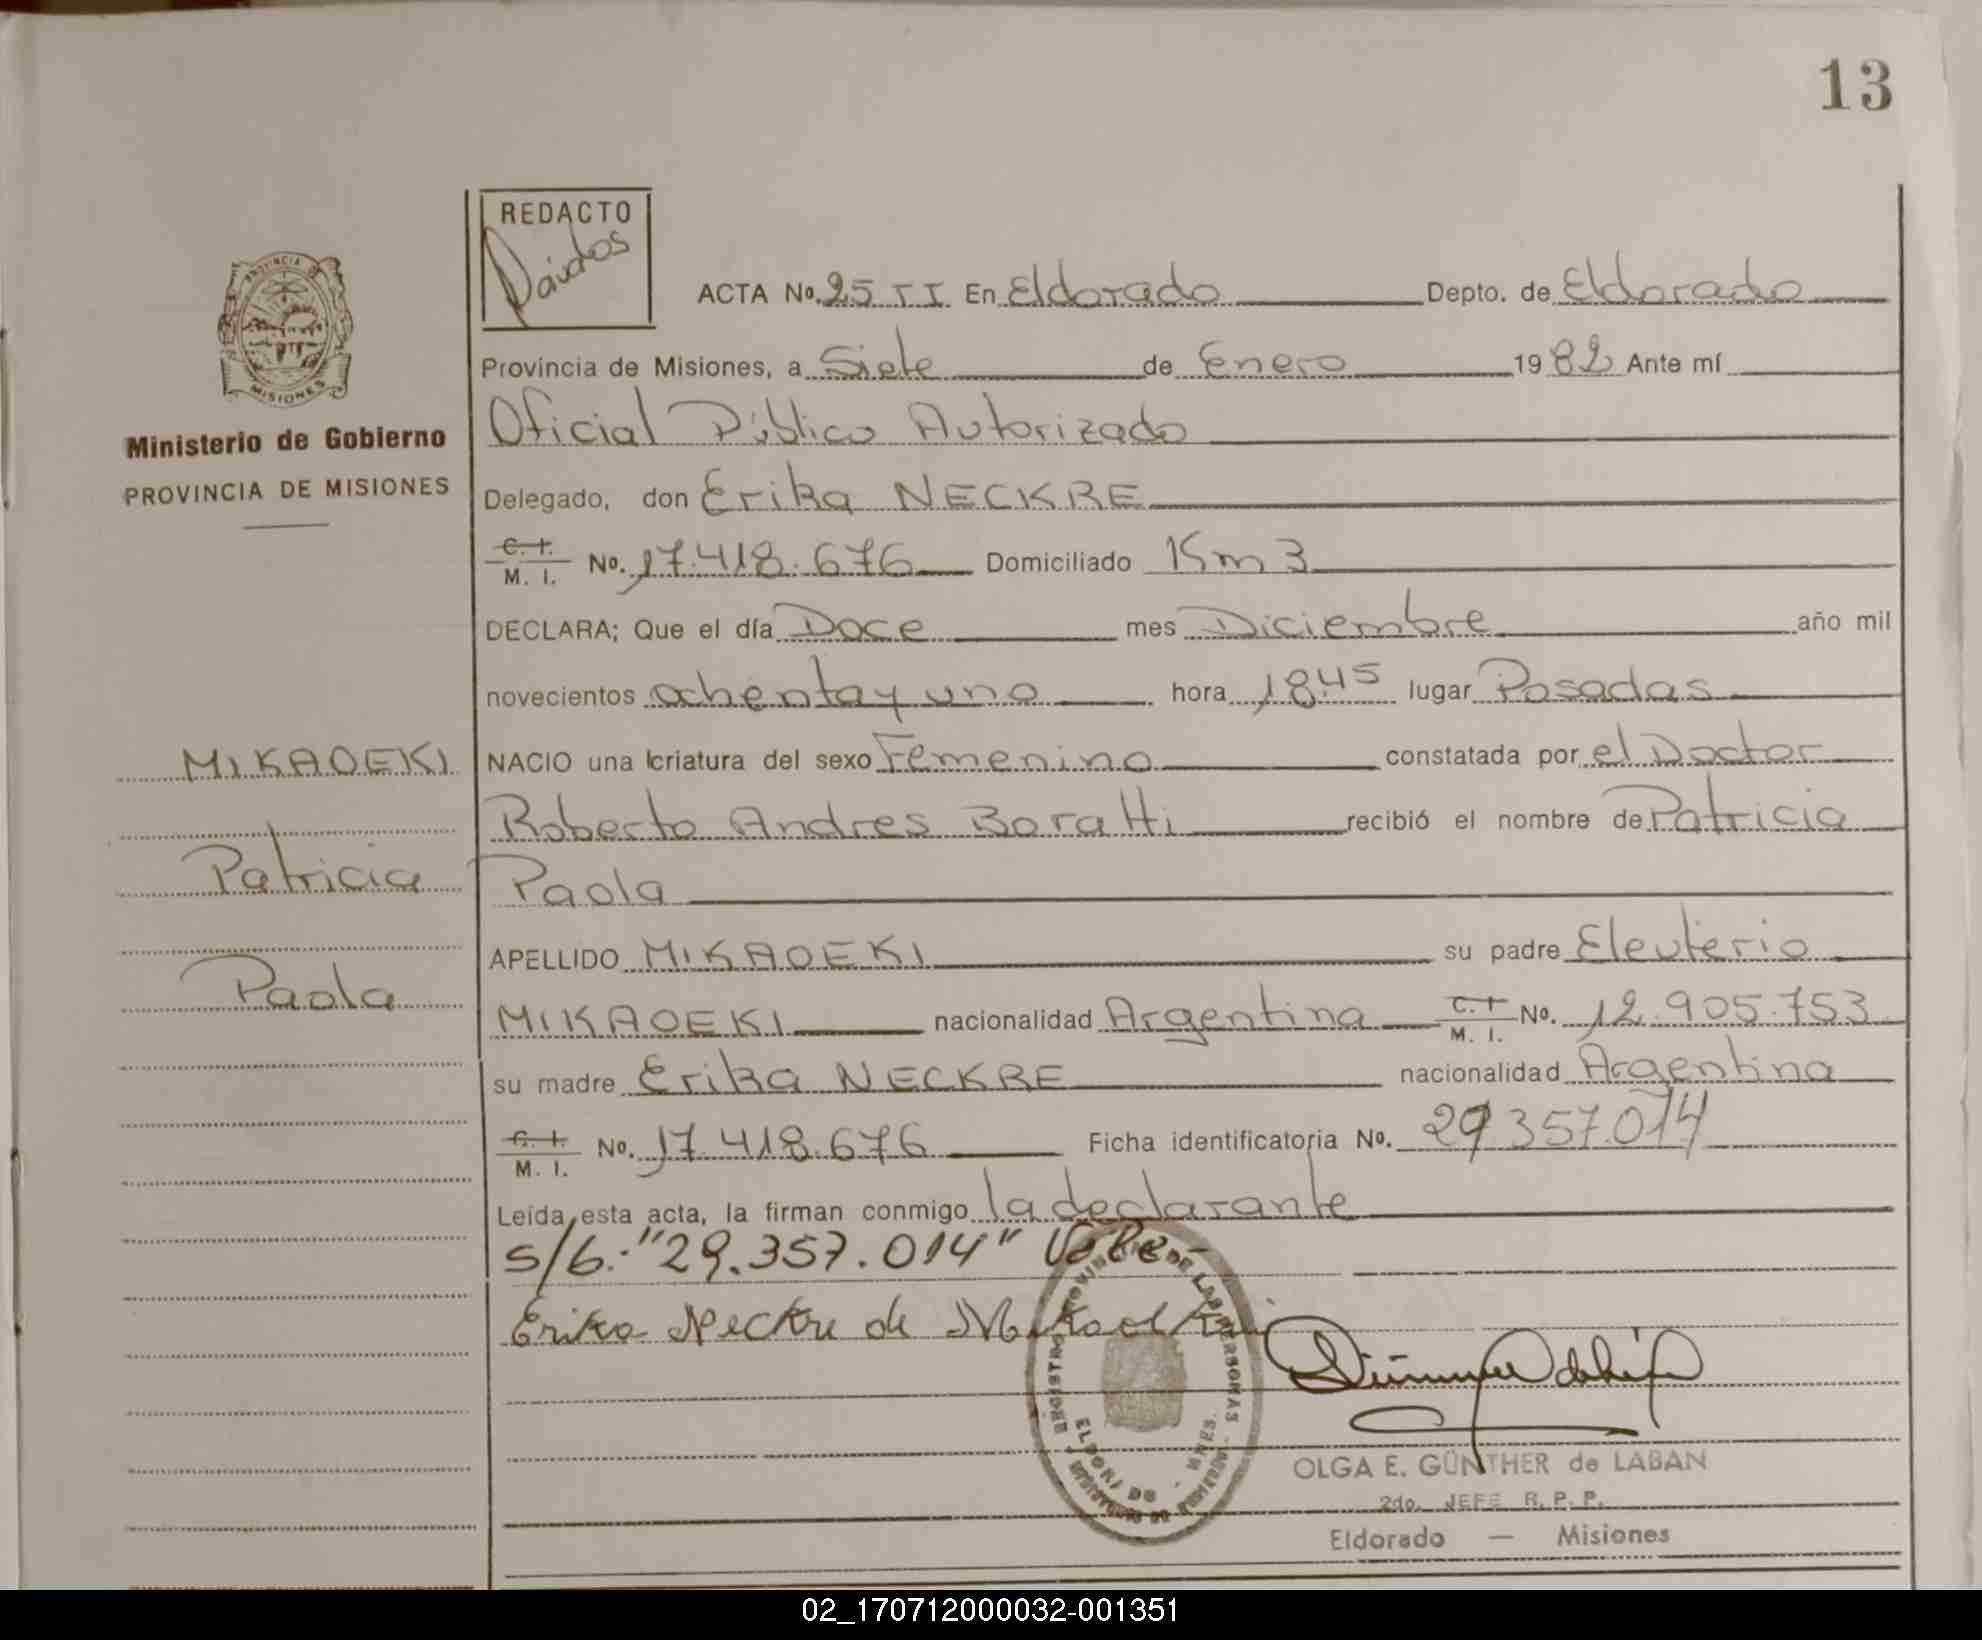 13
REDACTO
ACTA No. 25 TI En Eldorado Depto. de Eldorado
Provincia de Misiones, a Siete de Enero 1982 Ante mí
Oficial Público Autorizado
Delegado, don Erika NECKRE
C. I. M. I. No. 17.418.676 Domiciliado Km 3
DECLARA; Que el día Doce mes Diciembre año mil
novecientos ochenta y uno hora 18.45 lugar Posadas
NACIO una criatura del sexo Femenino constatada por el Doctor
Roberto Andres Boratti recibió el nombre de Patricia
Paola
APELLIDO MIKAOEKI su padre Eleuterio
MIKAOEKI nacionalidad Argentina C. I. M. I. No. 12.905.753
su madre Erika NECKRE nacionalidad Argentina
C. I. M. I. No. 17.418.676 Ficha identificatoria No. 29357.014
Leída esta acta, la firman conmigo la declarante
s/b: "29.357.014" Vale-
Erika Neckre de
PROVINCIA DE
MISIONES
Ministerio de Gobierno
PROVINCIA DE MISIONES
MIKAOEKI
Patricia
Paola
REGISTRO PROVINCIAL DE LAS PERSONAS
ELDORADO - MNES.
OLGA E. GÜNTHER de LABAN
2do. JEFE R. P. P.
Eldorado — Misiones
02_170712000032-001351